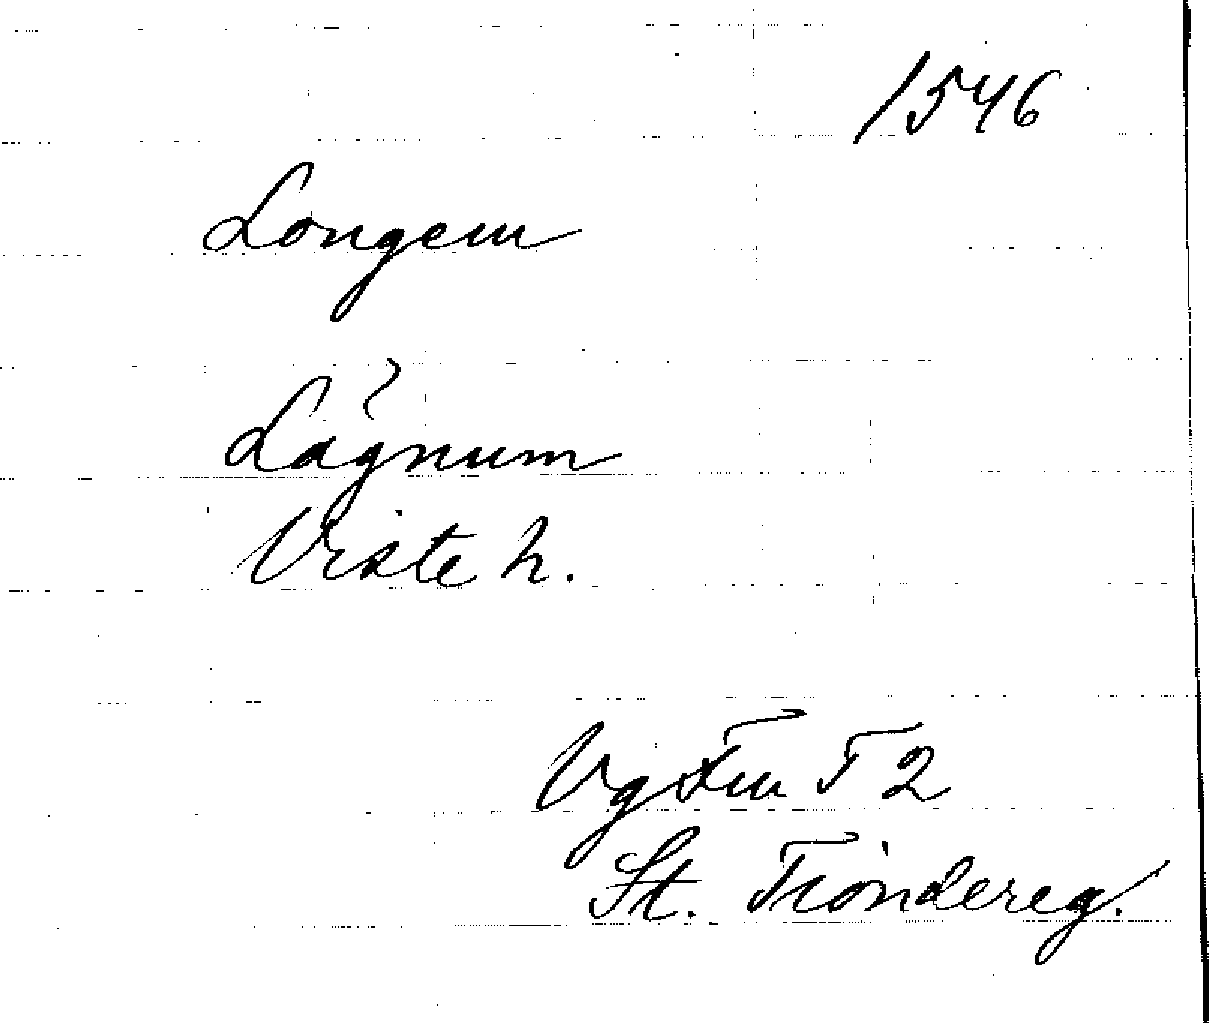 1546
Longem
Lagnum
Viste h.
Vg Fru T 2
St. Tiondereg.